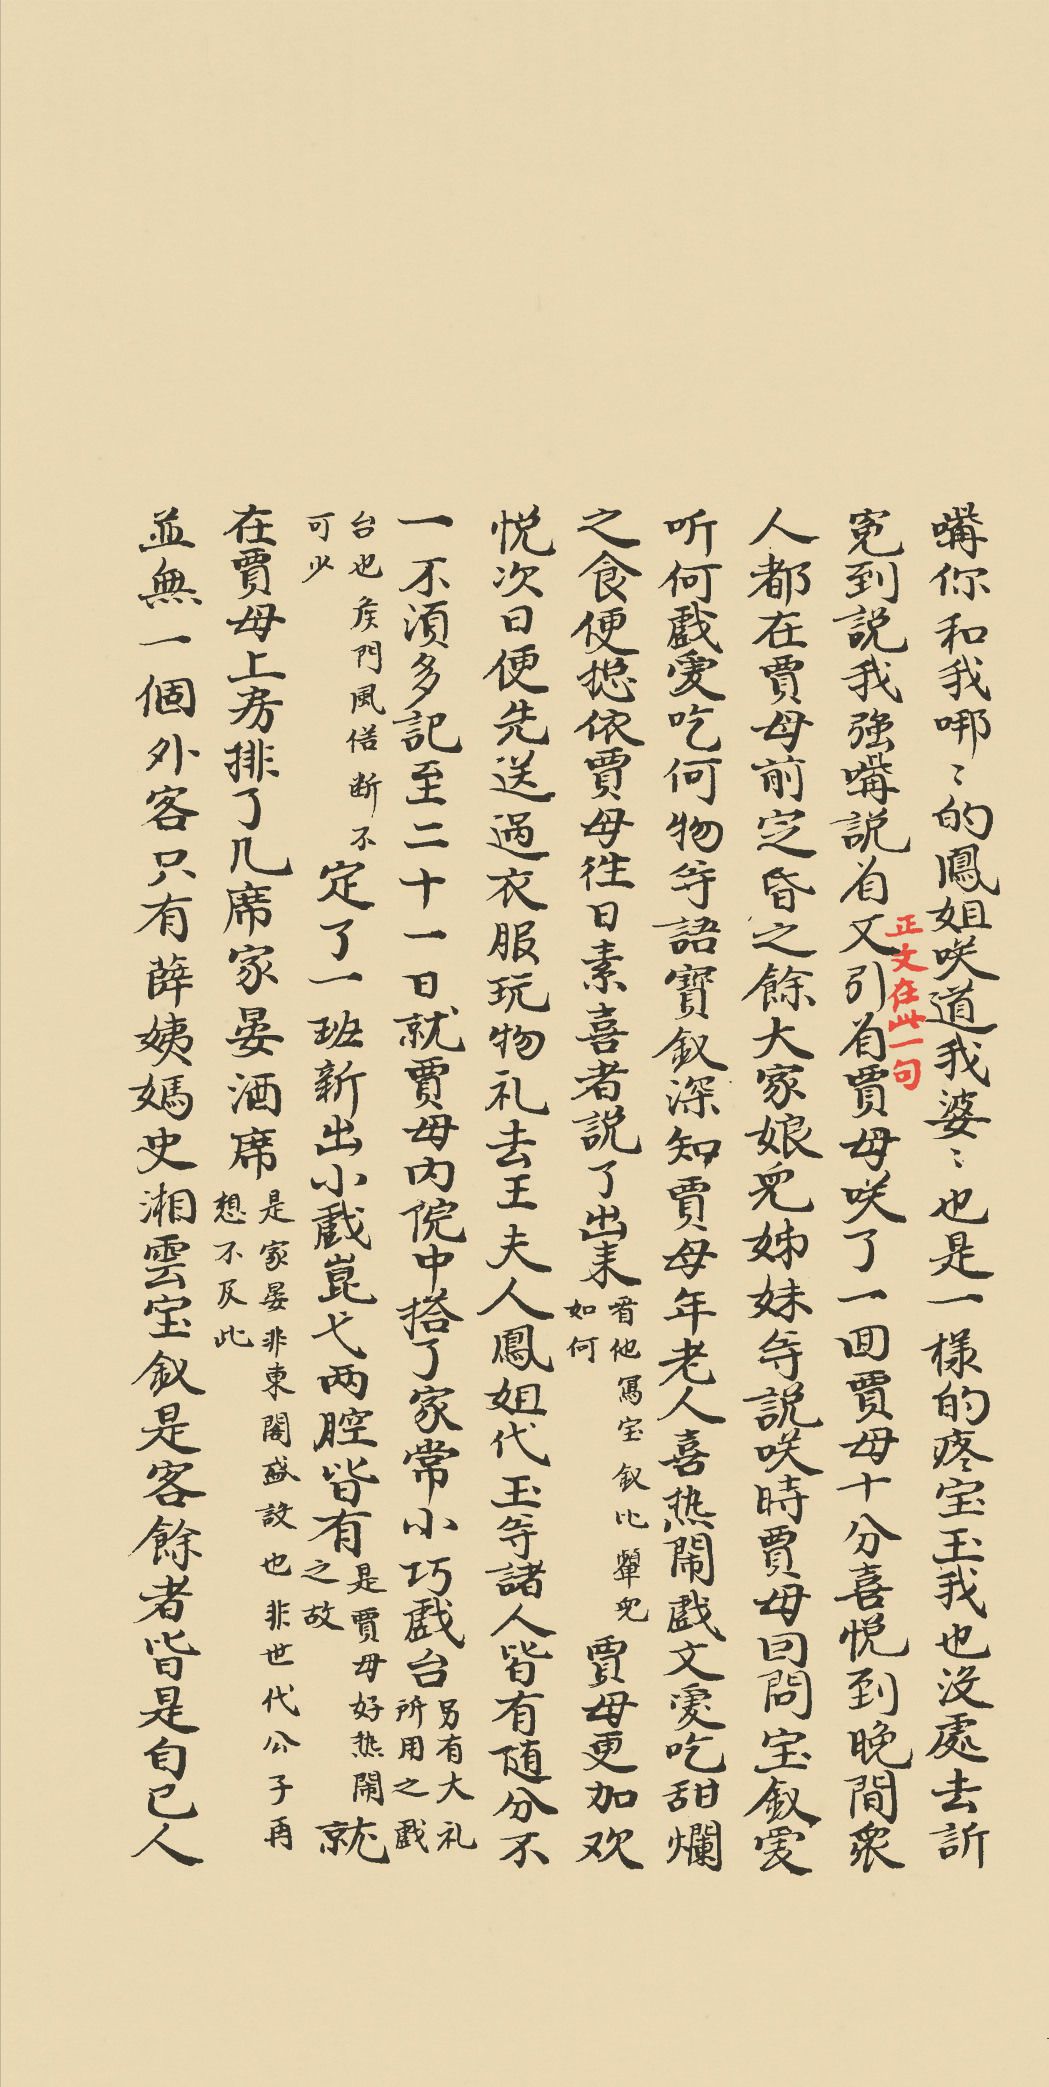 嘴你和我哪〻的鳳姐咲道我婆〻也是一樣的疼宝玉我也没處去訢
正文在此一句
冤到説我強嘴説着又引着賈母咲了一囬賈母十分喜悦到晚間衆
人都在賈母前定昏之餘大家娘兒姊妹等説咲時賈母囙問宝釵爱
听何戲爱吃何物等語寳釵深知賈母年老人喜热鬧戲文爱吃甜爛
之食便搃依賈母徃日素喜者説了出来
看他寫宝釵比颦兒
如何
賈母更加欢
悦次日便先送過衣服玩物礼去王夫人鳳姐代玉等諸人皆有随分不
一不湏多記至二十一日就賈母内院中搭了家常小巧戲台
另有大礼
所用之戲
台也矦門風俗断不
可少
定了一班新出小戲崑弋两腔皆有
是賈母好热鬧
之故
就
在賈母上房排了几席家晏酒席
是家晏非東閣盛設也非世代公子再
想不及此
並無一個外客只有薛姨媽史湘雲宝釵是客餘者皆是自己人